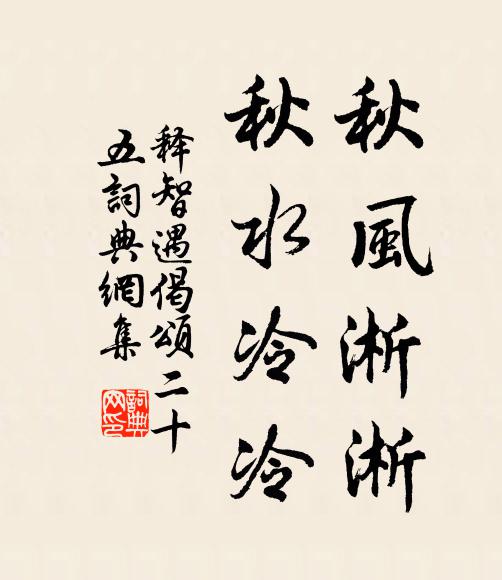 秋風淅淅
秋水冷冷
释智遇偈頌二十
五詞典網集
詞典
网印